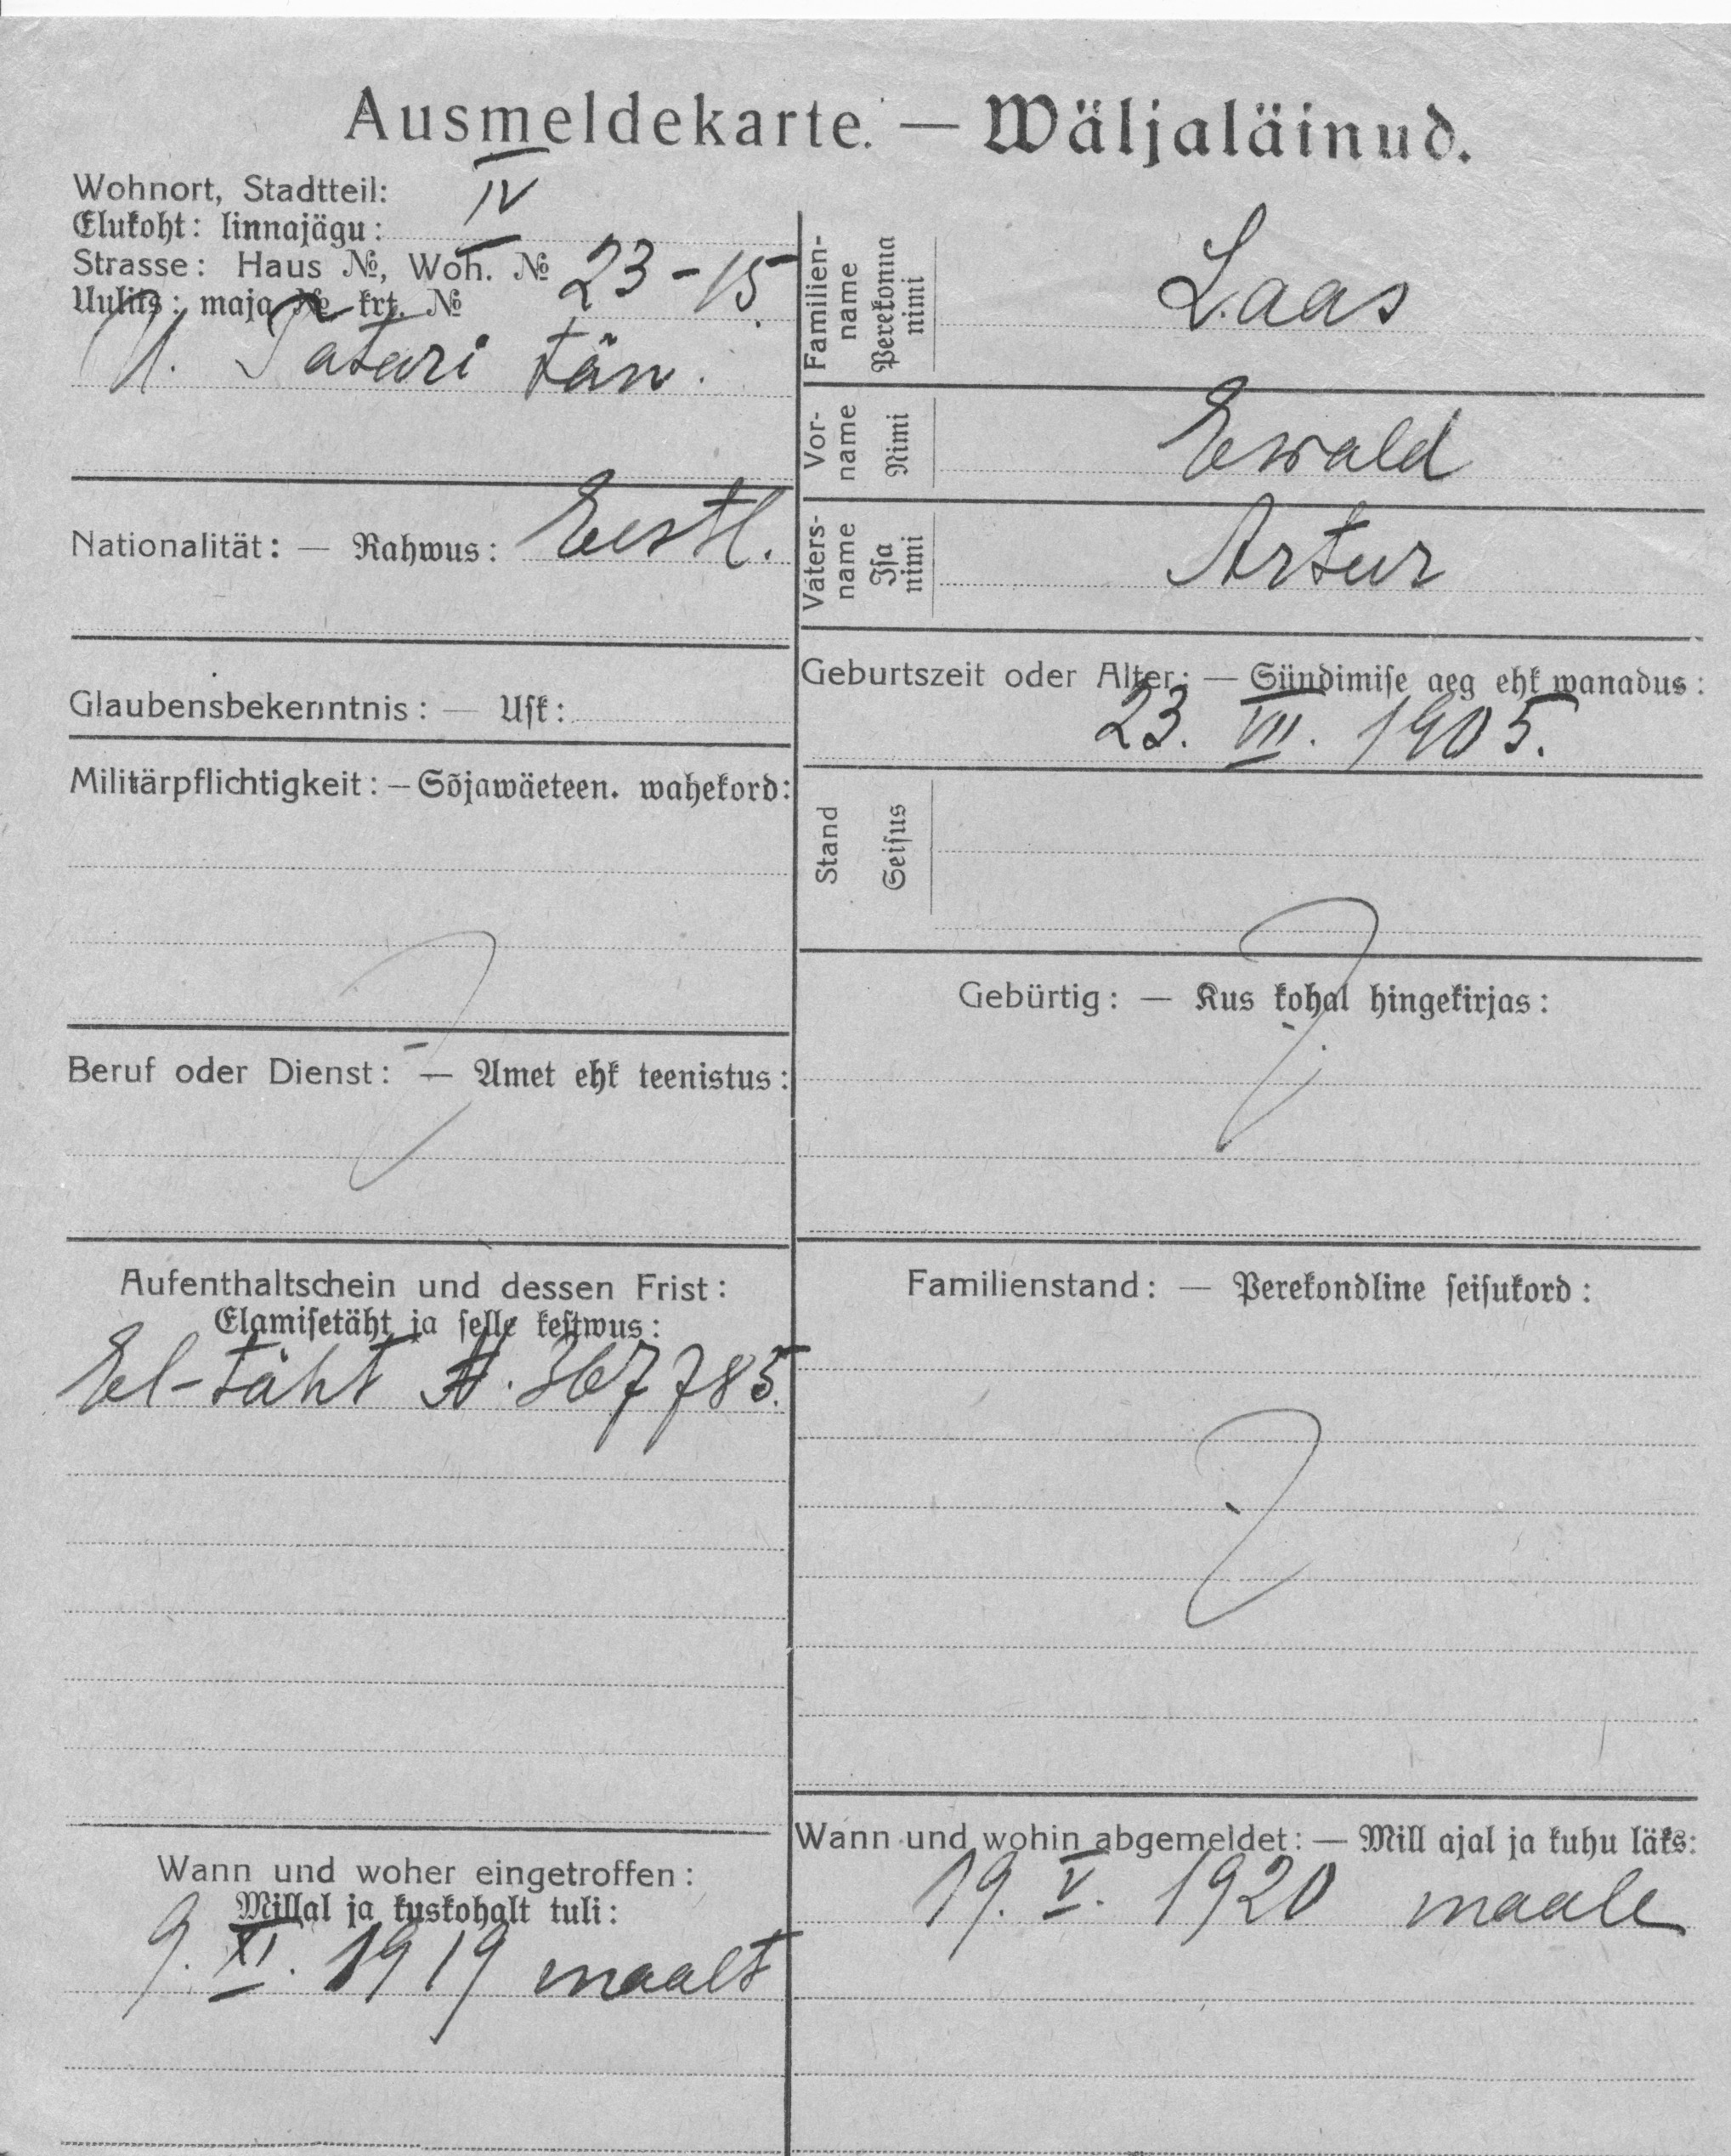 Ausmeldekarte. — Wäljaläinud.
Wohnort, Stadtteil:
Elukoht: linnajägu: IV
Strasse: Haus №, Woh. № 23-15
Uulits: maja № krt. №
U. Tatari tän.
Nationalität: — Rahwus: Eestl.
Glaubensbekenntnis: — Usk:
Militärpflichtigkeit: — Sõjawäeteen. wahekord:
Beruf oder Dienst: — Amet ehk teenistus:
Aufenthaltschein und dessen Frist:
Elamisetäht ja selle kestwus:
El-täht A. 367785.
Wann und woher eingetroffen:
Millal ja kuskohalt tuli:
9. XI. 1919 maalt
Familien-
name
Perekonna
nimi
Laas
Vor-
name
Nimi
Ewald
Vaters-
name
Isa
nimi
Artur
Geburtszeit oder Alter: — Sündimise aeg ehk wanadus:
23. VII. 1905.
Stand
Seisus
Gebürtig: — Kus kohal hingekirjas:
Familienstand: — Perekondline seisukord:
Wann und wohin abgemeldet: — Mill ajal ja kuhu läks:
19. V. 1920 maale